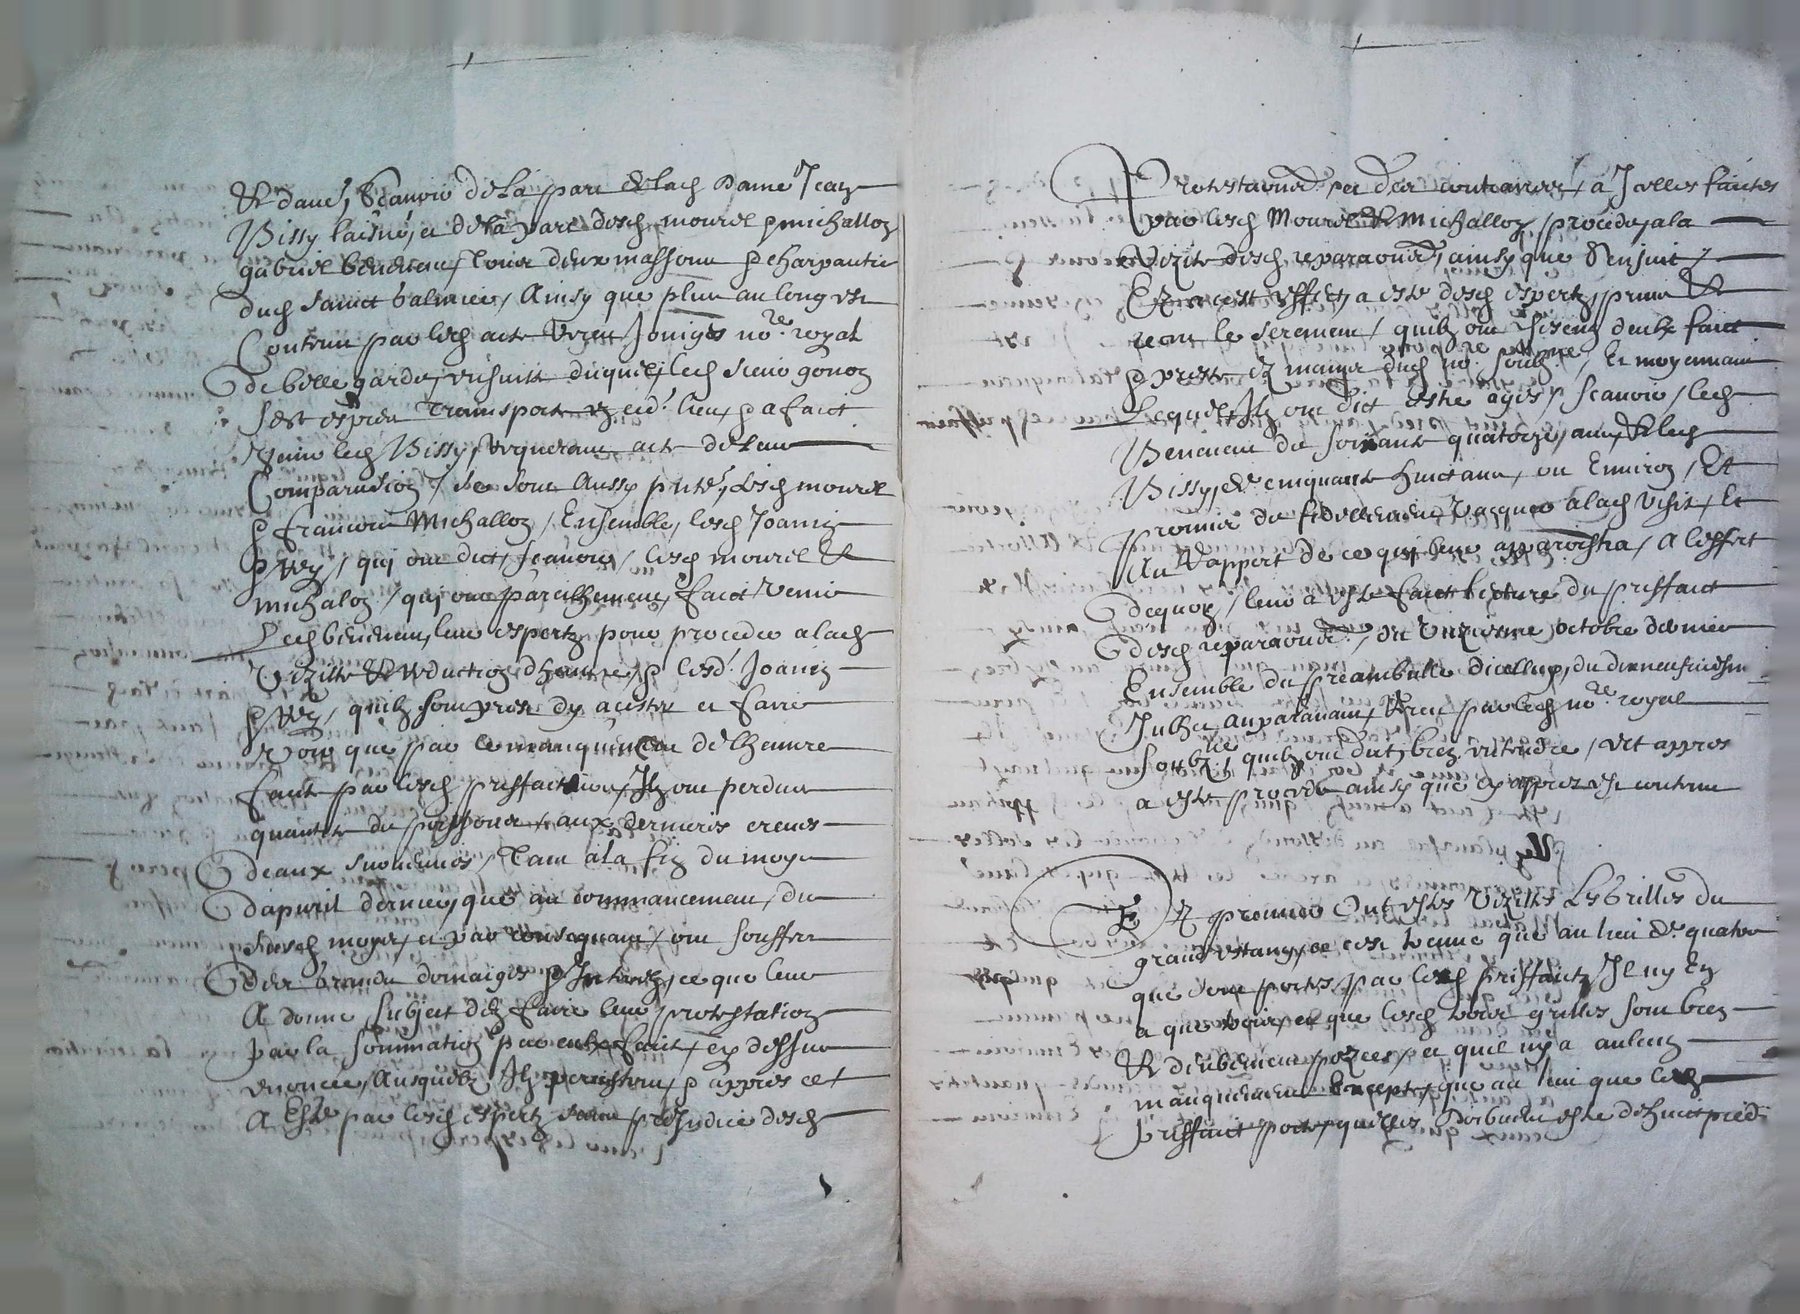 Et dame, Scavoir de la part de lad dame Jean
Bissy laisné, et de la part desd mourel & michalloz
gabriel benenau, tous deux massons & charpantier
dud sainct balmier, Ainsy que plus au long est
Contenu par led acte receu Jouiges no.re royal
de belle garde, ensuitte duquel, led sieur gonoz
sest exprès transporté en ced. lieu, & a faict
venir led Bissy, requerant acte de leur
Comparution, se sont Aussy pntés, lesd mourel
& francois Michalloz, Ensemble, lesd Joaniz
& Rey, qui ont dict, scavoir, lesd mourel et
michaloz, qui ont pareilhement, faict venir
Led benenau, leur expertz pour proceder a lad
Vizitte et reduction dheuvre, & lesd. Joaniz
& Rey, quilz sont prest dy acister et faire
Voir que par le manquement delheuvre
faict par lesd prisfacteurs, Ilz ont perdu
quantité de poissons, aux dernieres creues
deaux survenues, tant a la fin du moys
dapuril dernier, que au commancement, du
susd moys, et par consequant, ont souffert
des grands domaiges & Interestz, ce que leur
A donné subject den faire leur protestation
par la sommation par eulx faict, cy dessus
enoncée, Ausquelz Ilz percistent, & appres cet
A Esté par lesd expertz sans prejudice desd
Protestaons. et des contraires, a Icelles faictes
par lesd Mourel et Michalloz, procédé, a la
Vizitte desd reparaons, ainsy que sensuit
Et a cest effect, a esté desd expertz, prins et
receu le serement, quilz ont chiscung deulx faict
& presté ez mains dud no.re soubz.né, Et moyennant
Lequel, Ilz ont dict estre agés, scavoir, led
Benenau de soixante quatorze, ans, et led
Bissy, de cinquante huict ans, ou Environ, Et
promis de fidellement vacquer a lad visite, Et
Au Rapport de ce qui leur apparoistra, A leffect
dequoy, leur a esté faict lecture du prisfaict
desd reparaons, du Unziesme octobre dernier
Ensemble du preambulle dicelluy, du dixneufviesme
Juillet auparavant, Receu par led no.re royal
soubz.né quilz ont dict, bien entendre, Et appres
a esté procédé ainsy que cy appres est contenu
En premier Ont estes Vizittés Les Grilles du
grand estang, ce cest treuvé que au lieu de quatre
que sont portés, par lesd prisfaictz, Il ny En
a que trois, et que lesd trois grilles sont bien
Et deubement pozées, et quil ny a aulcung
manquement Excepté, que au lieu que led
prisfaict porte, quelles Doibuent estre de huict pieds